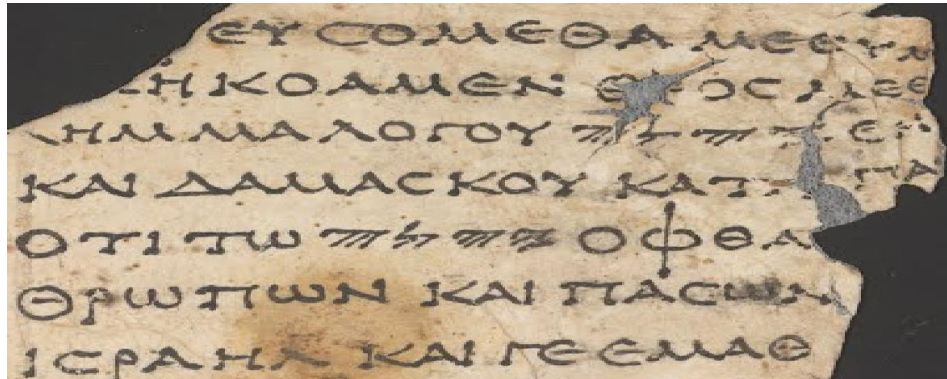 ΕΥϹΟΜΕΘΑ ΜΕΘΥΜ
ΚΗΚΟΑΜΕΝ ΘΕΟϹ ΜΕΘ
ΛΗΜΜΑ ΛΟΓΟΥ 𐤉𐤄𐤅𐤄 ΕΝ
ΚΑΙ ΔΑΜΑϹΚΟΥ ΚΑΤΑΠΑ
ΟΤΙ ΤΩ 𐤉𐤄𐤅𐤄 ΟΦΘΑ
ΘΡΩΠΩΝ ΚΑΙ ΠΑϹΩΝ
ΙϹΡΑΗΛ ΚΑΙ ΓΕ ΕΜΑΘ